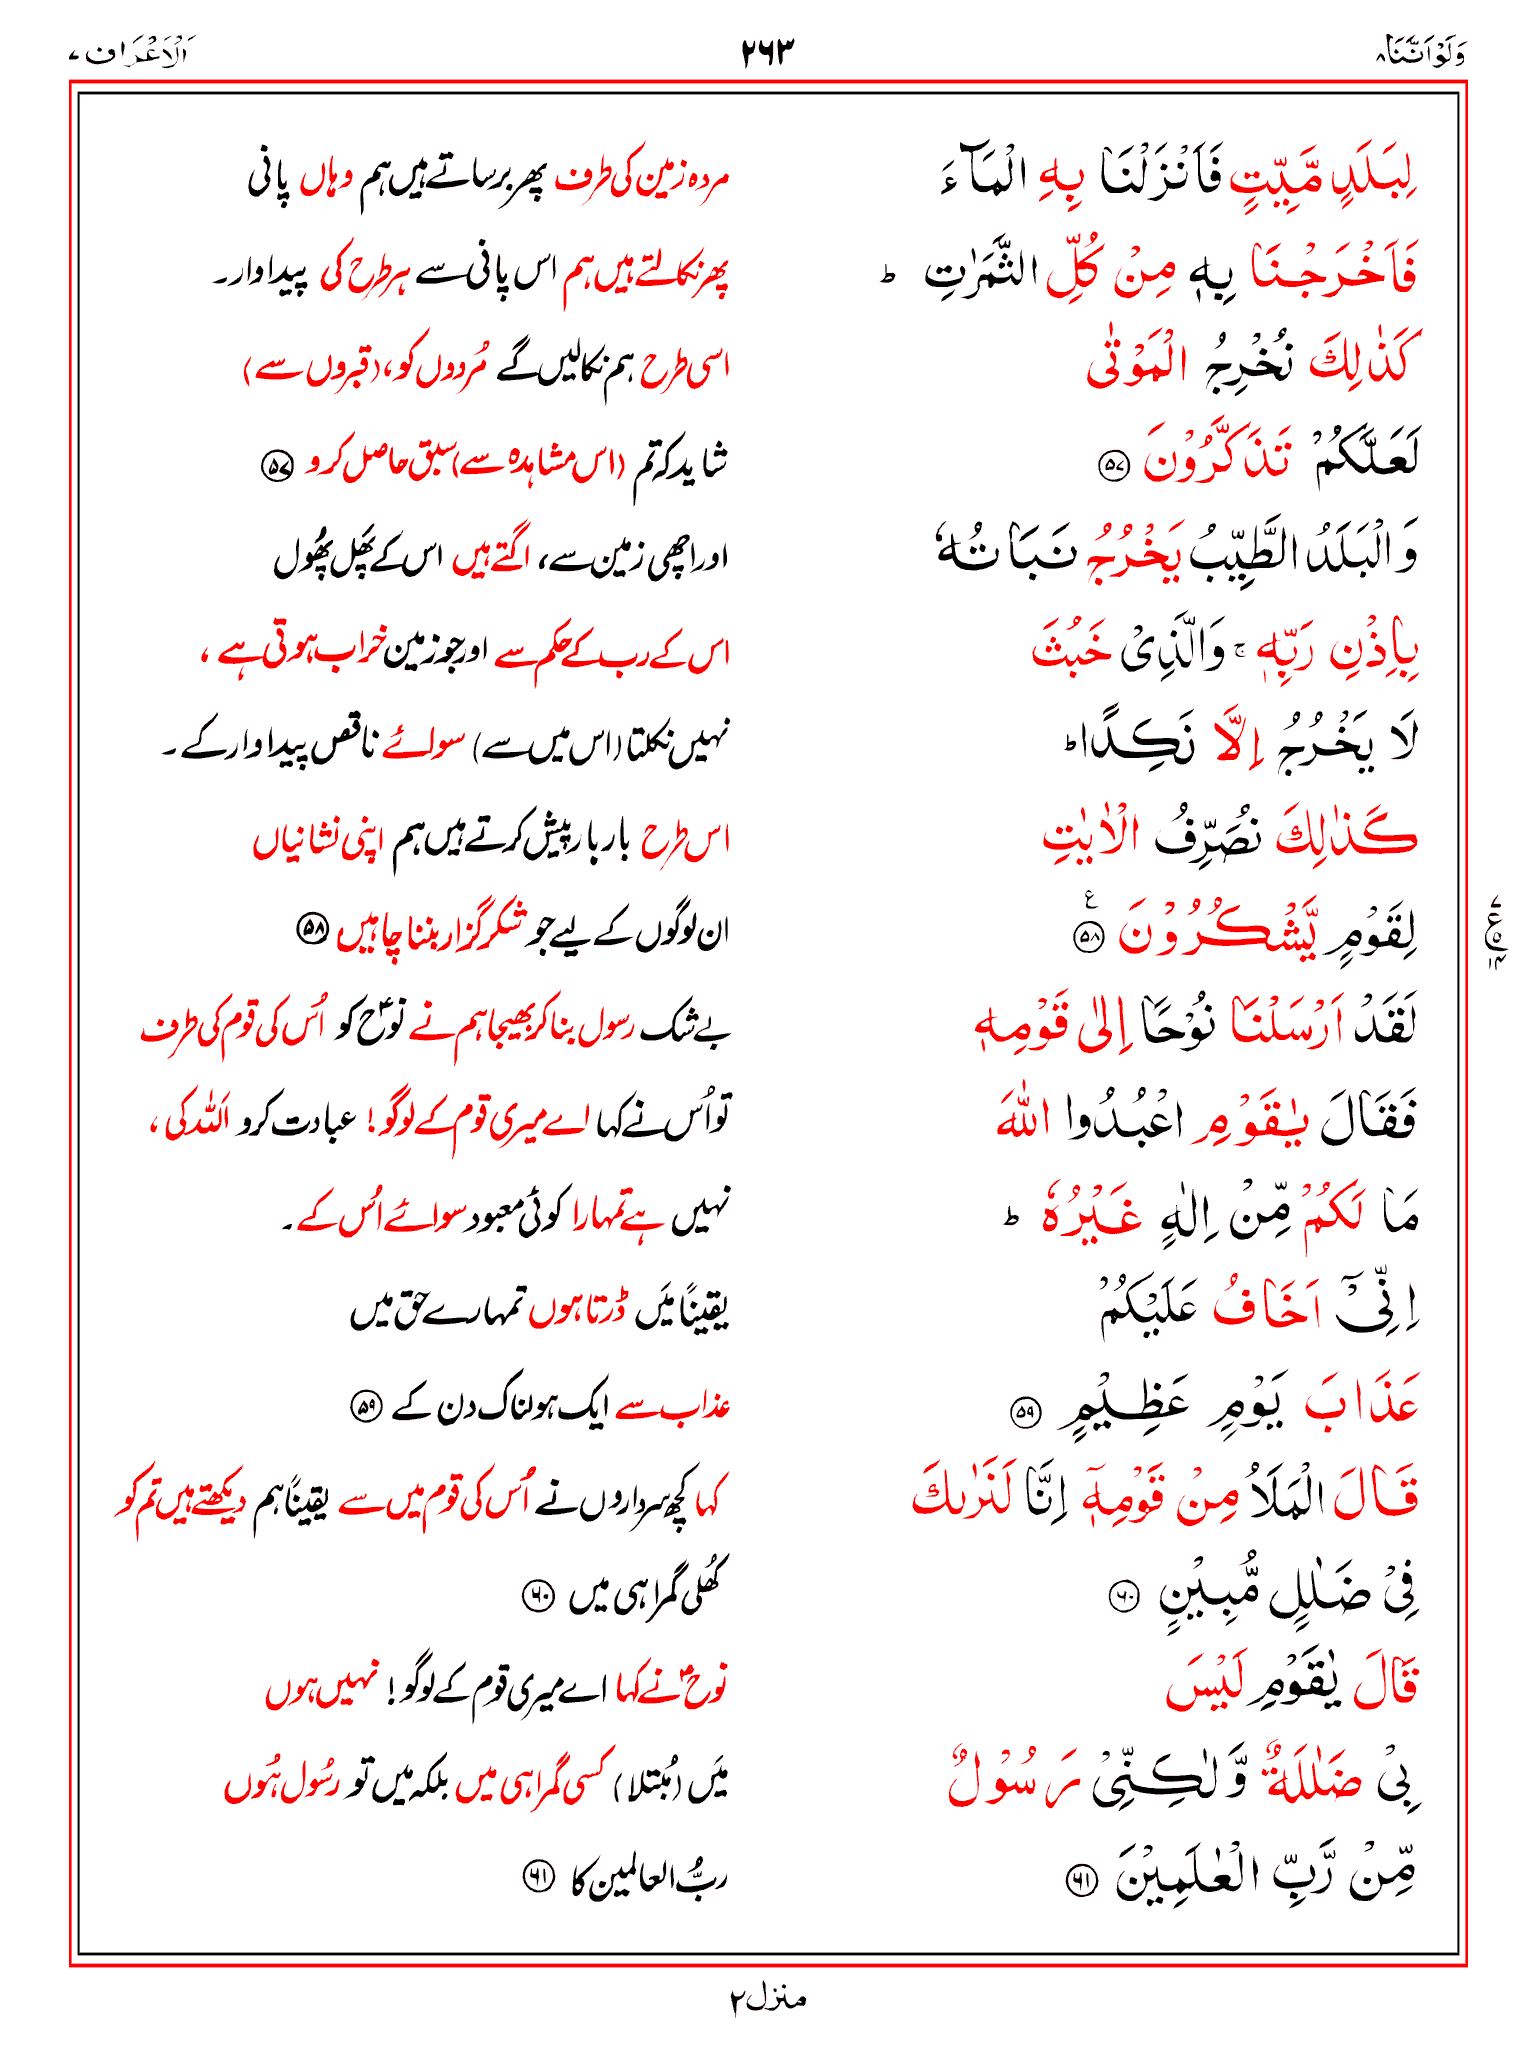 وَلَوْ اَنَّنَا ۸
۲۶۳
اَلْاَعْرَاف ۷
لِبَلَدٍ مَّيِّتٍ فَاَنْزَلْنَا بِهِ الْمَآءَ
مردہ زمین کی طرف پھر برساتے ہیں ہم وہاں پانی
فَاَخْرَجْنَا بِهٖ مِنْ كُلِّ الثَّمَرٰتِ ؕ
پھر نکالتے ہیں ہم اس پانی سے ہر طرح کی پیداوار۔
كَذٰلِكَ نُخْرِجُ الْمَوْتٰى
اسی طرح ہم نکالیں گے مُردوں کو، (قبروں سے)
لَعَلَّكُمْ تَذَكَّرُوْنَ ﴿۵۷﴾
شاید کہ تم (اس مشاہدہ سے) سبق حاصل کرو ﴿۵۷﴾
وَالْبَلَدُ الطَّيِّبُ يَخْرُجُ نَبَاتُهٗ
اور اچھی زمین سے، اگتے ہیں اس کے پَھل پُھول
بِاِذْنِ رَبِّهٖ ۚ وَالَّذِىْ خَبُثَ
اس کے رب کے حکم سے اور جو زمین خراب ہوتی ہے ،
لَا يَخْرُجُ اِلَّا نَكِدًا ؕ
نہیں نکلتا (اس میں سے) سوائے ناقص پیداوار کے ۔
كَذٰلِكَ نُصَرِّفُ الْاٰيٰتِ
اس طرح بار بار پیش کرتے ہیں ہم اپنی نشانیاں
لِقَوْمٍ يَّشْكُرُوْنَ ﴿۵۸﴾ ع
ان لوگوں کے لیے جو شکر گزار بننا چاہیں ﴿۵۸﴾
۷ ع ۵ ۱۴
لَقَدْ اَرْسَلْنَا نُوْحًا اِلٰى قَوْمِهٖ
بے شک رسول بنا کر بھیجا ہم نے نوحؑ کو اُس کی قوم کی طرف
فَقَالَ يٰقَوْمِ اعْبُدُوا اللهَ
تو اُس نے کہا اے میری قوم کے لوگو! عبادت کرو اللہ کی ،
مَا لَكُمْ مِّنْ اِلٰهٍ غَيْرُهٗ ؕ
نہیں ہے تمہارا کوئی معبود سوائے اُس کے ۔
اِنِّىْٓ اَخَافُ عَلَيْكُمْ
یقیناً میَں ڈرتا ہوں تمہارے حق میں
عَذَابَ يَوْمٍ عَظِيْمٍ ﴿۵۹﴾
عذاب سے ایک ہولناک دن کے ﴿۵۹﴾
قَالَ الْمَلَاُ مِنْ قَوْمِهٖٓ اِنَّا لَنَرٰىكَ
کہا کچھ سرداروں نے اُس کی قوم میں سے یقیناً ہم دیکھتے ہیں تم کو
فِىْ ضَلٰلٍ مُّبِيْنٍ ﴿۶۰﴾
کُھلی گمراہی میں ﴿۶۰﴾
قَالَ يٰقَوْمِ لَيْسَ
نوحؑ نے کہا اے میری قوم کے لوگو! نہیں ہوں
بِىْ ضَلٰلَةٌ وَّلٰكِنِّىْ رَسُوْلٌ
میَں (مُبتلا) کسی گمراہی میں بلکہ میں تو رسُول ہُوں
مِّنْ رَّبِّ الْعٰلَمِيْنَ ﴿۶۱﴾
ربُّ العالمین کا ﴿۶۱﴾
منزل ۲